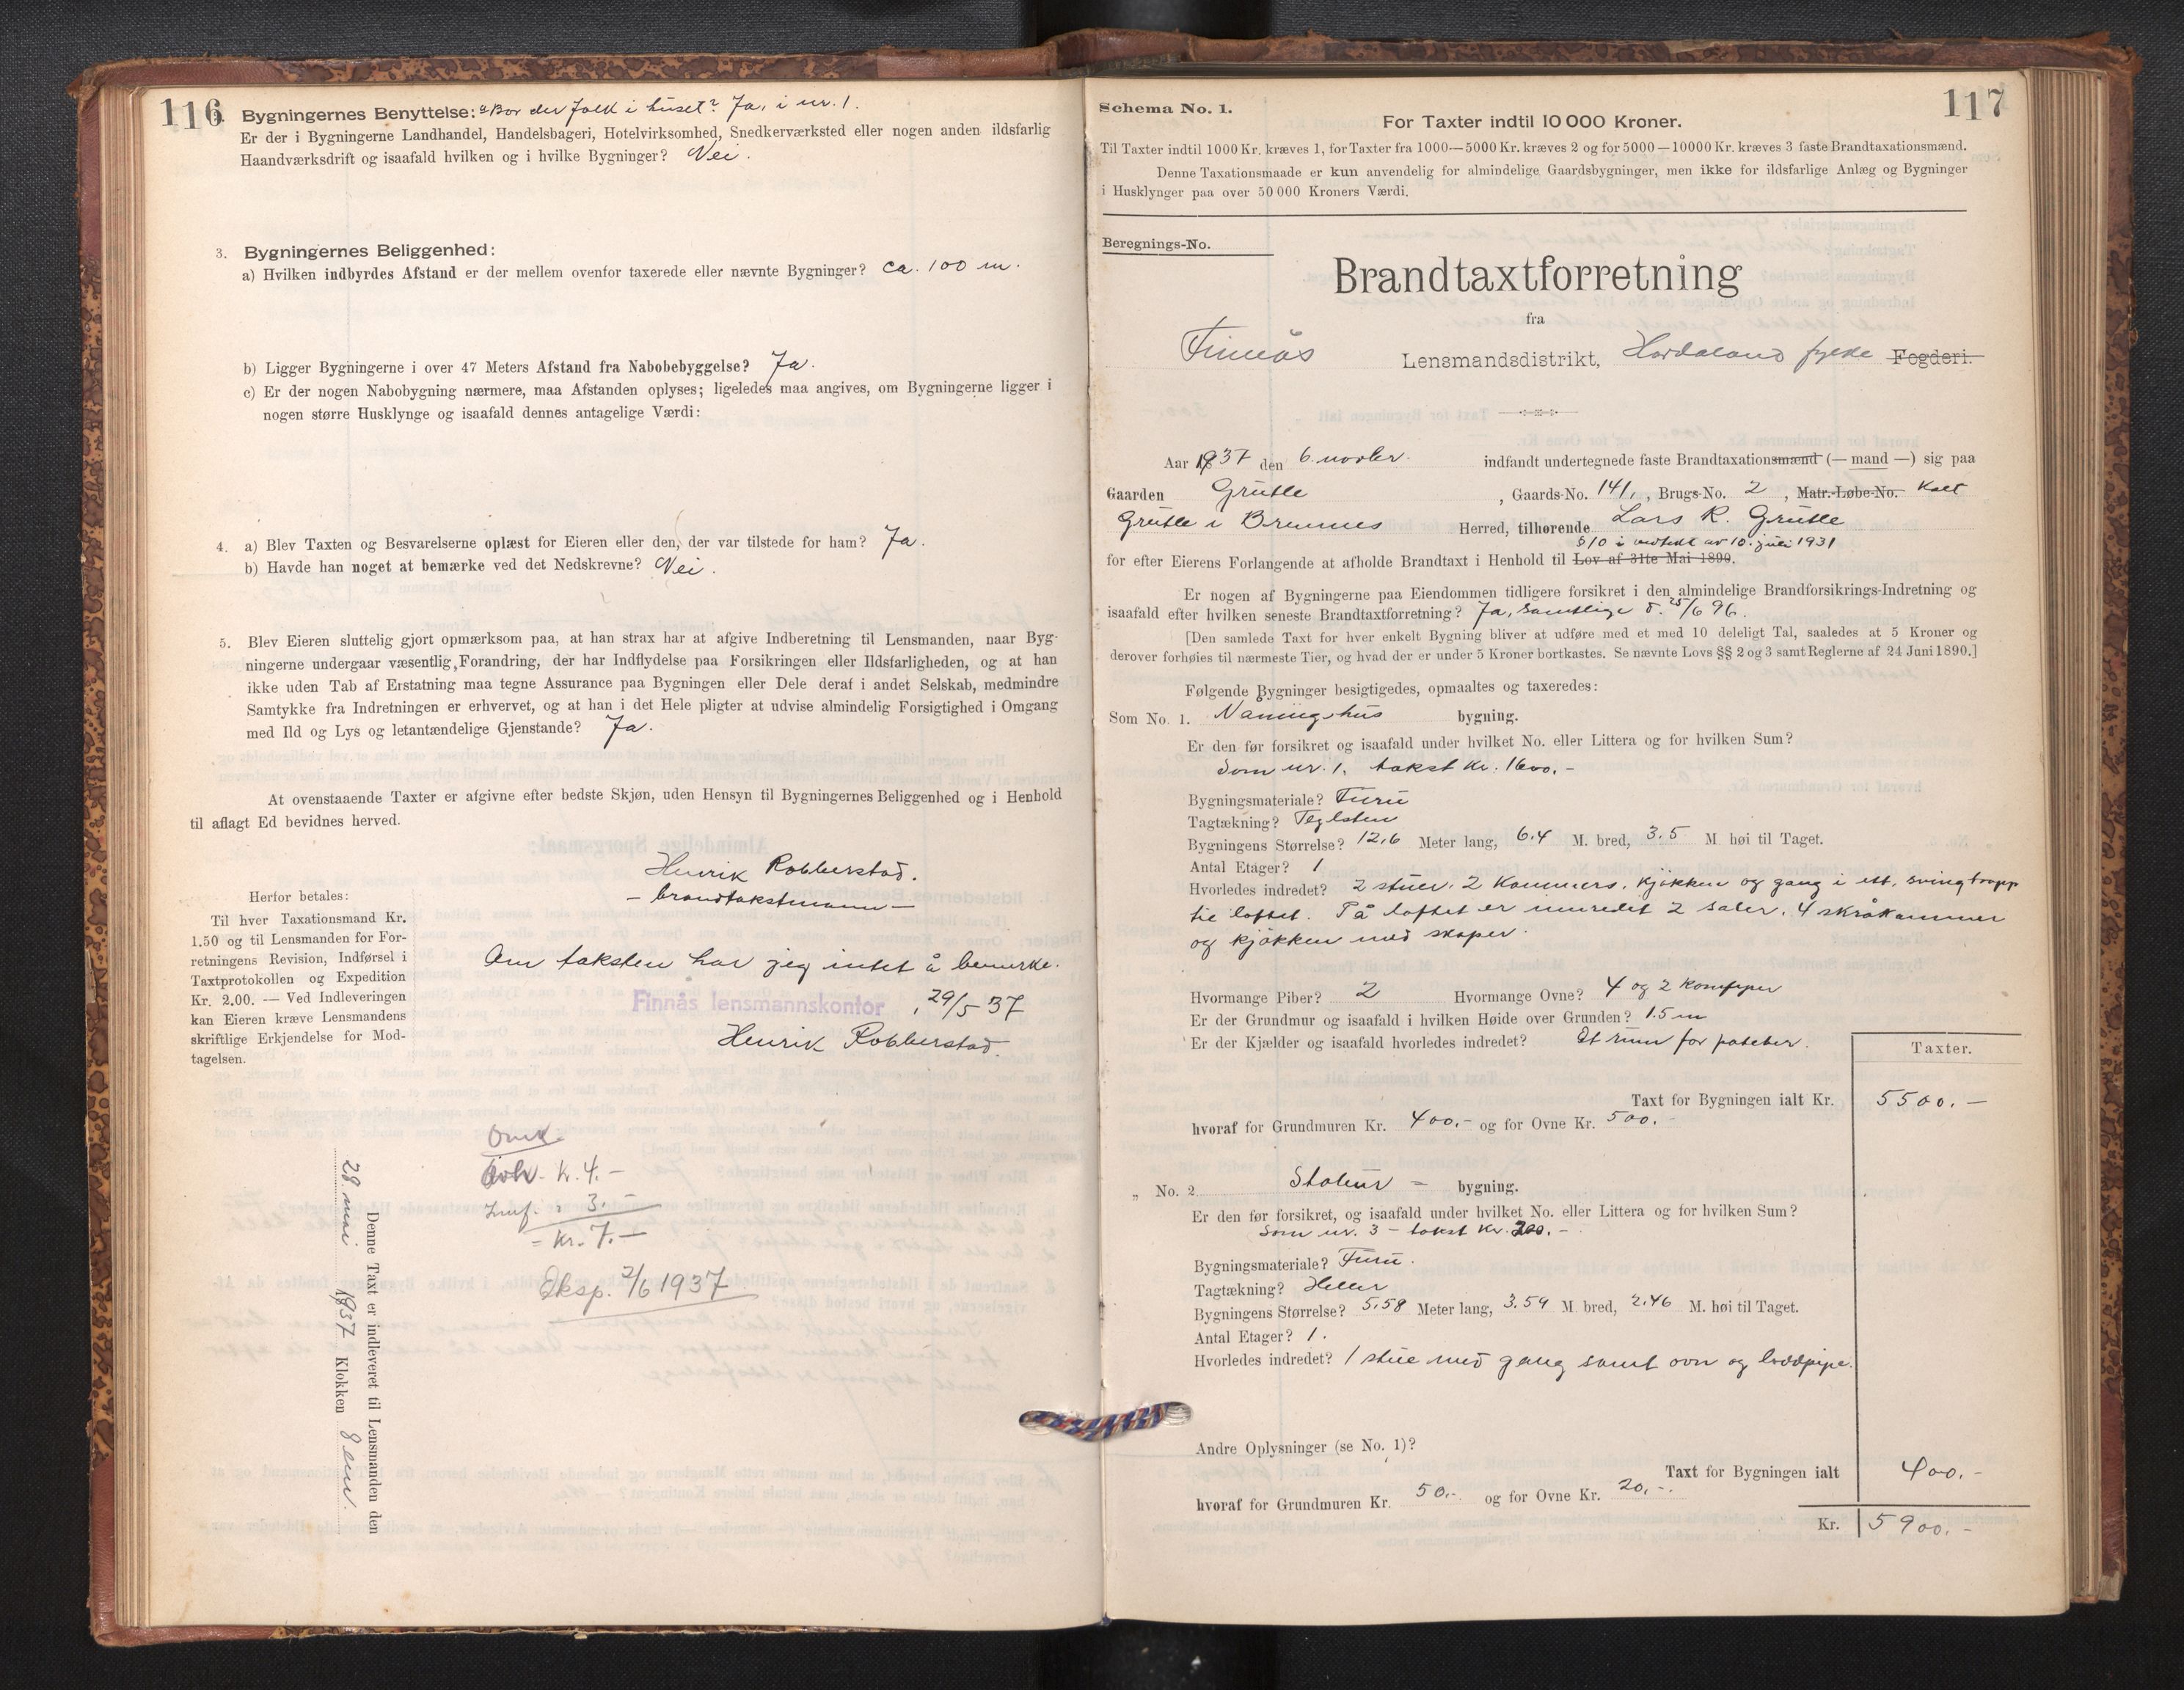 116
Bygningernes Benyttelse: a Bor der folk i huset? Ja, i nr. 1.
Er der i Bygningerne Landhandel, Handelsbageri, Hotelvirksomhed, Snedkerværksted eller nogen anden ildsfarlig
Haandværksdrift og isaafald hvilken og i hvilke Bygninger? Nei.
3. Bygningernes Beliggenhed:
a) Hvilken indbyrdes Afstand er der mellem ovenfor taxerede eller nævnte Bygninger? ca. 100 m.
b) Ligger Bygningerne i over 47 Meters Afstand fra Nabobebyggelse? Ja.
c) Er der nogen Nabobygning nærmere, maa Afstanden oplyses; ligeledes maa angives, om Bygningerne ligger i
nogen større Husklynge og isaafald dennes antagelige Værdi:
4. a) Blev Taxten og Besvarelserne oplæst for Eieren eller den, der var tilstede for ham? Ja.
b) Havde han noget at bemærke ved det Nedskrevne? Nei.
5. Blev Eieren sluttelig gjort opmærksom paa, at han strax har at afgive Indberetning til Lensmanden, naar Byg-
ningerne undergaar væsentlig Forandring, der har Indflydelse paa Forsikringen eller Ildsfarligheden, og at han
ikke uden Tab af Erstatning maa tegne Assurance paa Bygningen eller Dele deraf i andet Selskab, medmindre
Samtykke fra Indretningen er erhvervet, og at han i det Hele pligter at udvise almindelig Forsigtighed i Omgang
med Ild og Lys og letantændelige Gjenstande? Ja.
At ovenstaaende Taxter er afgivne efter bedste Skjøn, uden Hensyn til Bygningernes Beliggenhed og i Henhold
til aflagt Ed bevidnes herved.
Henrik Robberstad.
- brandtakstmann -
Herfor betales:
Til hver Taxationsmand Kr.
1.50 og til Lensmanden for For-
retningens Revision, Indførsel i
Taxtprotokollen og Expedition
Kr. 2.00. — Ved Indleveringen
kan Eieren kræve Lensmandens
skriftlige Erkjendelse for Mod-
tagelsen.
Om taksten har jeg intet å bemerke.
Finnås lensmannskontor, 29/5 37
Henrik Robberstad.
Kr. 4.-
3.-
= Kr. 7.-
Eksp. 2/6 1937
Denne Taxt er indleveret til Lensmanden den
28. mai 1937 Klokken 8 em.
117
Schema No. 1.
For Taxter indtil 10 000 Kroner.
Til Taxter indtil 1000 Kr. kræves 1, for Taxter fra 1000—5000 Kr. kræves 2 og for 5000—10000 Kr. kræves 3 faste Brandtaxationsmænd.
Denne Taxationsmaade er kun anvendelig for almindelige Gaardsbygninger, men ikke for ildsfarlige Anlæg og Bygninger
i Husklynger paa over 50 000 Kroners Værdi.
Beregnings-No.
Brandtaxtforretning
fra
Finnås Lensmandsdistrikt, Hordaland fylke Fogderi.
Aar 1937 den 6. novbr. indfandt undertegnede faste Brandtaxationsmænd (— mand —) sig paa
Gaarden Grutle, Gaards-No. 141, Brugs-No. 2, Matr.-Løbe-No. kalt
Grutle i Bremnes Herred, tilhørende Lars R. Grutle
§ 10 i vedtekt av 10. juli 1931
for efter Eierens Forlangende at afholde Brandtaxt i Henhold til Lov af 31te Mai 1890.
Er nogen af Bygningerne paa Eiendommen tidligere forsikret i den almindelige Brandforsikrings-Indretning og
isaafald efter hvilken seneste Brandtaxtforretning? Ja, samtlige d. 25/6 96.
[Den samlede Taxt for hver enkelt Bygning bliver at udføre med et med 10 deleligt Tal, saaledes at 5 Kroner og
derover forhøies til nærmeste Tier, og hvad der er under 5 Kroner bortkastes. Se nævnte Lovs §§ 2 og 3 samt Reglerne af 24 Juni 1890.]
Følgende Bygninger besigtigedes, opmaaltes og taxeredes:
Som No. 1. Våningshus bygning.
Er den før forsikret og isaafald under hvilket No. eller Littera og for hvilken Sum?
Som nr. 1. takst kr. 1600.-
Bygningsmateriale? Furu
Tagtækning? Teglsten
Bygningens Størrelse? 12,6 Meter lang, 6.4 M. bred, 3.5 M høi til Taget.
Antal Etager? 1
Hvorledes indredet? 2 stuer, 2 kammers, kjøkken og gang i ett, svingtrapp
til loftet. På loftet er innredet 2 saler, 4 skråkammer
og kjøkken med skaper.
Hvormange Piber? 2 Hvormange Ovne? 4 og 2 komfyrer
Er der Grundmur og isaafald i hvilken Høide over Grunden? 1.5 m
Er der Kjælder og isaafald hvorledes indredet? Et rum for poteter.
Taxter.
Taxt for Bygningen ialt Kr. 5500.-
hvoraf for Grundmuren Kr. 400.- og for Ovne Kr. 500.-
„ No. 2. Stabur - bygning.
Er den før forsikret, og isaafald under hvilket No. eller Littera og for hvilken Sum?
Som nr. 3 - takst kr. 200.-
Bygningsmateriale? Furu.
Tagtækning? Heller
Bygningens Størrelse? 5.58 Meter lang, 3.59 M. bred, 2.46 M. høi til Taget.
Antal Etager? 1.
Hvorledes indredet? 1 stue med gang samt ovn og
Andre Oplysninger (se No. 1)?
Taxt for Bygningen ialt 400.-
hvoraf for Grundmuren Kr. 50.- og for Ovne Kr. 20.-
Kr. 5900.-